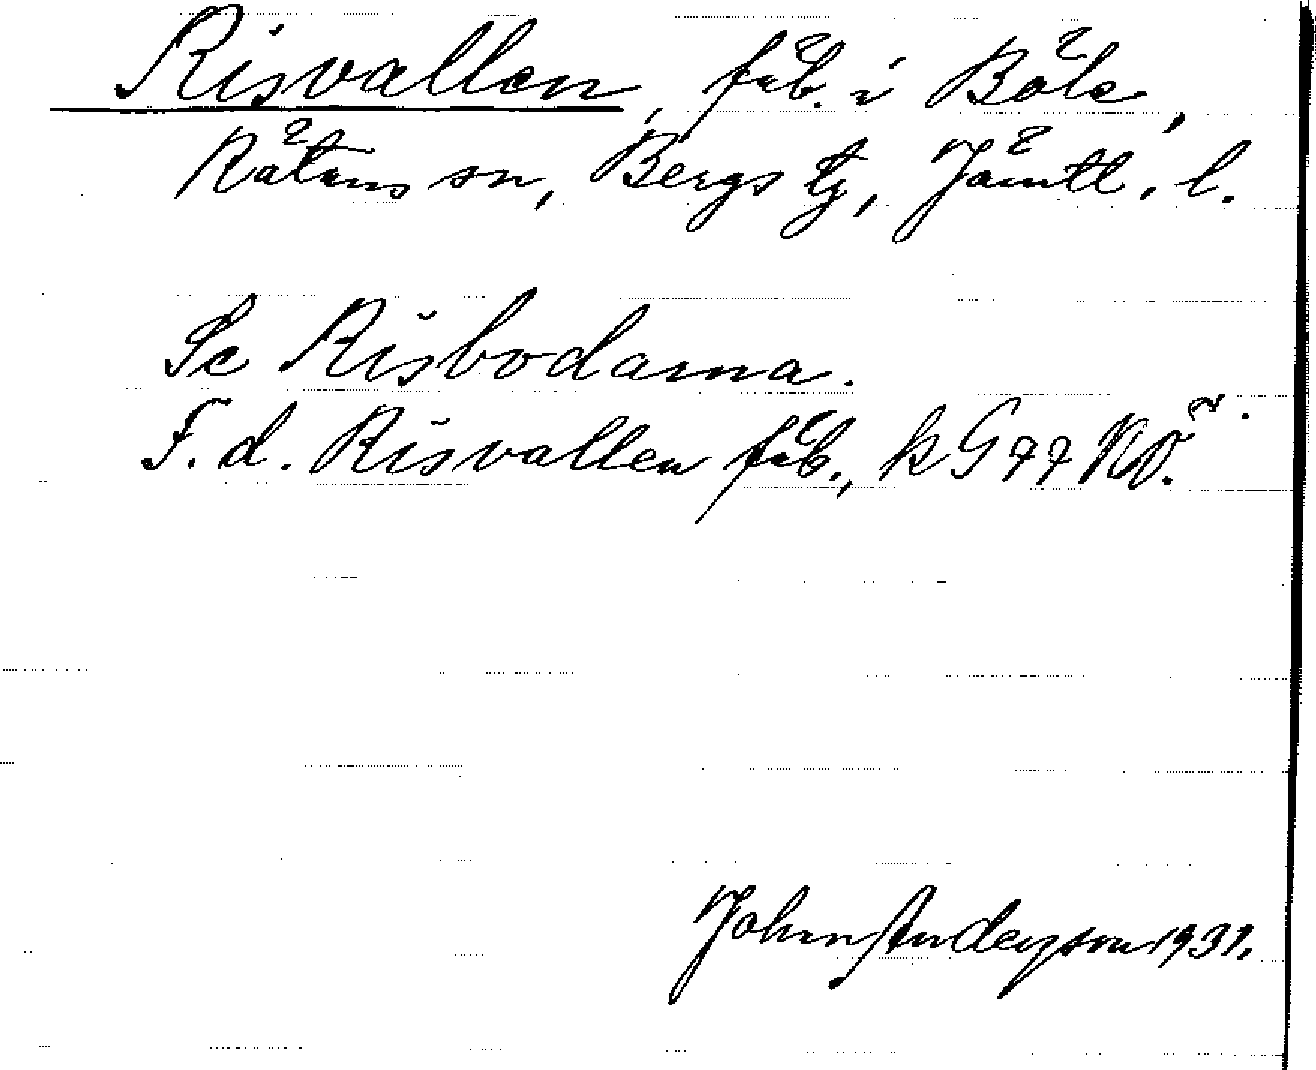 Risvallen, fäb. iBöle,
Rätans sn, Bergs tg, Jämtl. l.
Se Risbodarna.
F.d. Risvallen fäb., k G 77 NÖ.
John Anderson 1931.